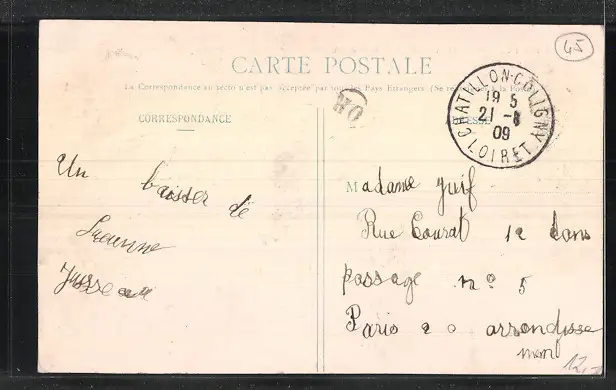 45
CARTE POSTALE
La Correspondance au recto n'est pas acceptée par tous les Pays Etrangers (Se à la Poste
CORRESPONDANCE
OR
CHATILLON-COLIGNY
19 5
21 -8
09
LOIRET
Un baiser de
Madame Juif
Rue Courat 12 dans
passage no 5
Paris 20 arrondisse
ment
12,-